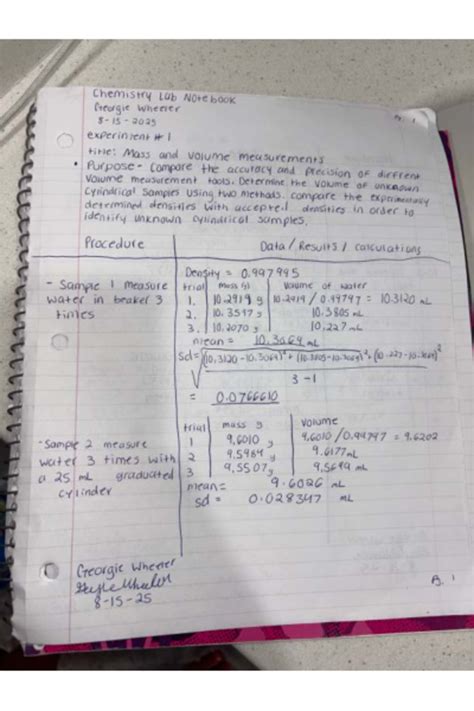 Chemistry Lab Notebook
Georgie Wheeler
8-15-2025
Pg. 1
experiment #1
title: Mass and volume measurements
• Purpose - Compare the accuracy and precision of different
volume measurement tools. Determine the volume of unknown
cylindrical samples using two methods. compare the
determined densities with accepted densities in order to
identify unknown cylindrical samples.
Procedure
Data / Results / calculations
Density = 0.997995
- Sample 1 measure
water in beaker 3
times
trial mass (g) volume of water
1. 10.2919 g 10.2919 / 0.99797 = 10.3120 mL
2. 10.3597 g 10.3805 mL
3. 10.2070 g 10.227 mL
mean = 10.3069 mL
sd = √(10.3120 - 10.3069)² + (10.3805 - 10.3069)² + (10.227 - 10.3069)²
3 - 1
= 0.0766610
- Sample 2 measure
water 3 times with
a 25 mL graduated
cylinder
trial mass g volume
1 9.6010 g 9.6010 / 0.99797 = 9.6202
2 9.5984 g 9.6177 mL
3 9.5507 g 9.5699 mL
mean = 9.6026 mL
sd = 0.028347 mL
Georgie Wheeler
8-15-25
Pg. 1